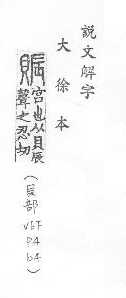 説文解字
大徐本
賑
富也从貝辰
聲之忍切
(貝部